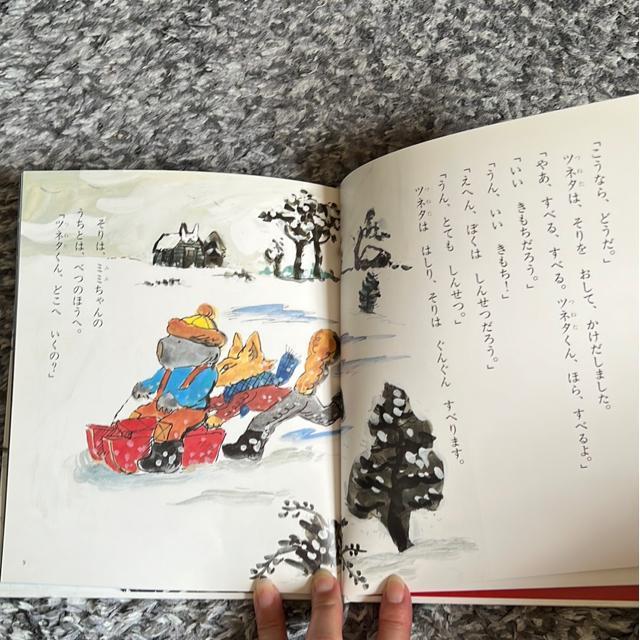 「こうなら、どうだ。」
ツネタは、そりを おして、かけだしました。
「やあ、すべる、すべる。ツネタくん、ほら、すべるよ。」
「いい きもちだろう。」
「うん、いい きもち！」
「えへん、ぼくは しんせつだろう。」
「うん、とても しんせつ。」
ツネタは はしり、そりは ぐんぐん すべります。
そりは、ミミちゃんの
うちとは、べつのほうへ。
「ツネタくん、どこへ いくの？」